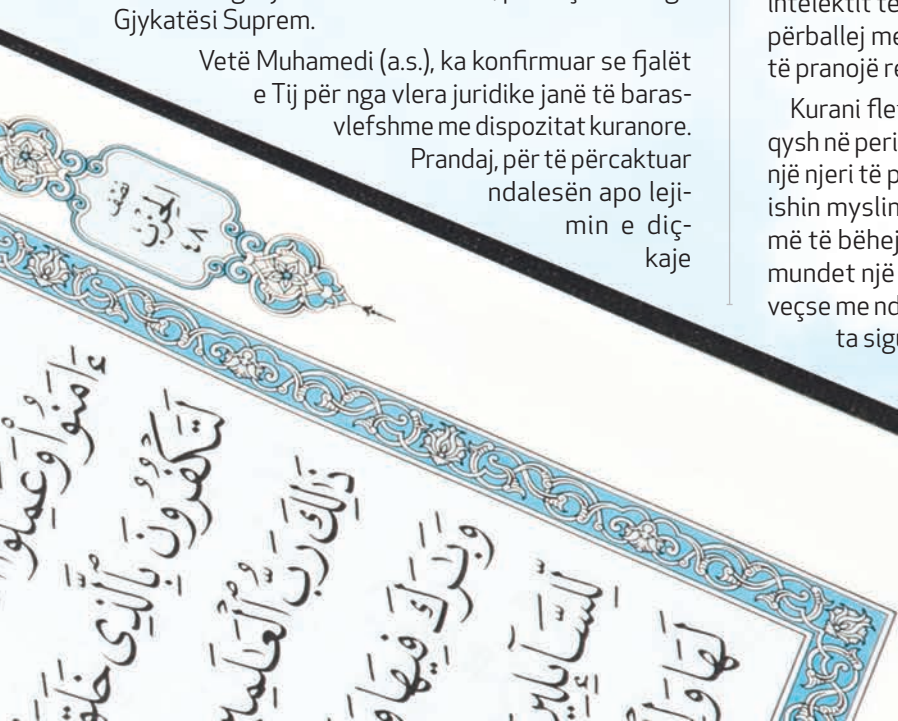 Gjykatësi Suprem.
Vetë Muhamedi (a.s.), ka konfirmuar se fjalët
e Tij për nga vlera juridike janë të baras-
vlefshme me dispozitat kuranore.
Prandaj, për të përcaktuar
ndalesën apo leji-
min e diç-
kaje
intelektit të
përballej me
të pranojë re
Kurani flet
qysh në peri
një njeri të p
ishin myslin
më të bëhej
mundet një
veçse me nd
ta sigu
نصف
الحزب
٤٨
ءَامَنُوا۟ وَعَمِلُوا
لَتَكْفُرُونَ بِٱلَّذِى خَلَقَ
ذَٰلِكَ رَبُّ ٱلْعَٰلَمِينَ
وَبَٰرَكَ فِيهَا وَ
لِّلسَّآئِلِينَ
لَهَا وَلِ